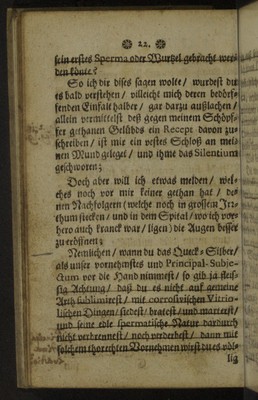 22.
sein erstes Sperma oder Wurtzel gebracht wer-
den könte?
So ich dir dises sagen wolte / wurdest du
es bald verstehen / villeicht mich deren bedörf-
fenden Einfalt halber / gar darzu außlachen /
allein vermittelst deß gegen meinem Schöpf-
fer gethanen Gelübds ein Recept davon zu-
schreiben / ist mir ein vestes Schloß an mei-
nen Mund geleget / und ihme das Silentium
geschworen;
Doch aber will ich etwas melden / wel-
ches noch vor mir keiner gethan hat / de-
nen Nachfolgern (welche noch in grossem Irr-
thum stecken / und in dem Spital / wo ich vor-
hero auch kranck war / ligen) die Augen besser
zu eröffnen;
Nemlichen / wann du das Queck-Silber /
als unser vornehmstes und Principal-Subje-
ctum vor die Hand nimmest / so gib ja fleis-
sig Achtung / daß du es nicht auf gemeine
Arth sublimirest / mit corrosivischen Vitrio-
lischen Dingen / siedest / bratest / und marterst /
und seine edle spermatische Natur dardurch
nicht verbrennest / noch verderbest / dann mit
solchem thorechten Vornehmen wirst du es völ-
lig